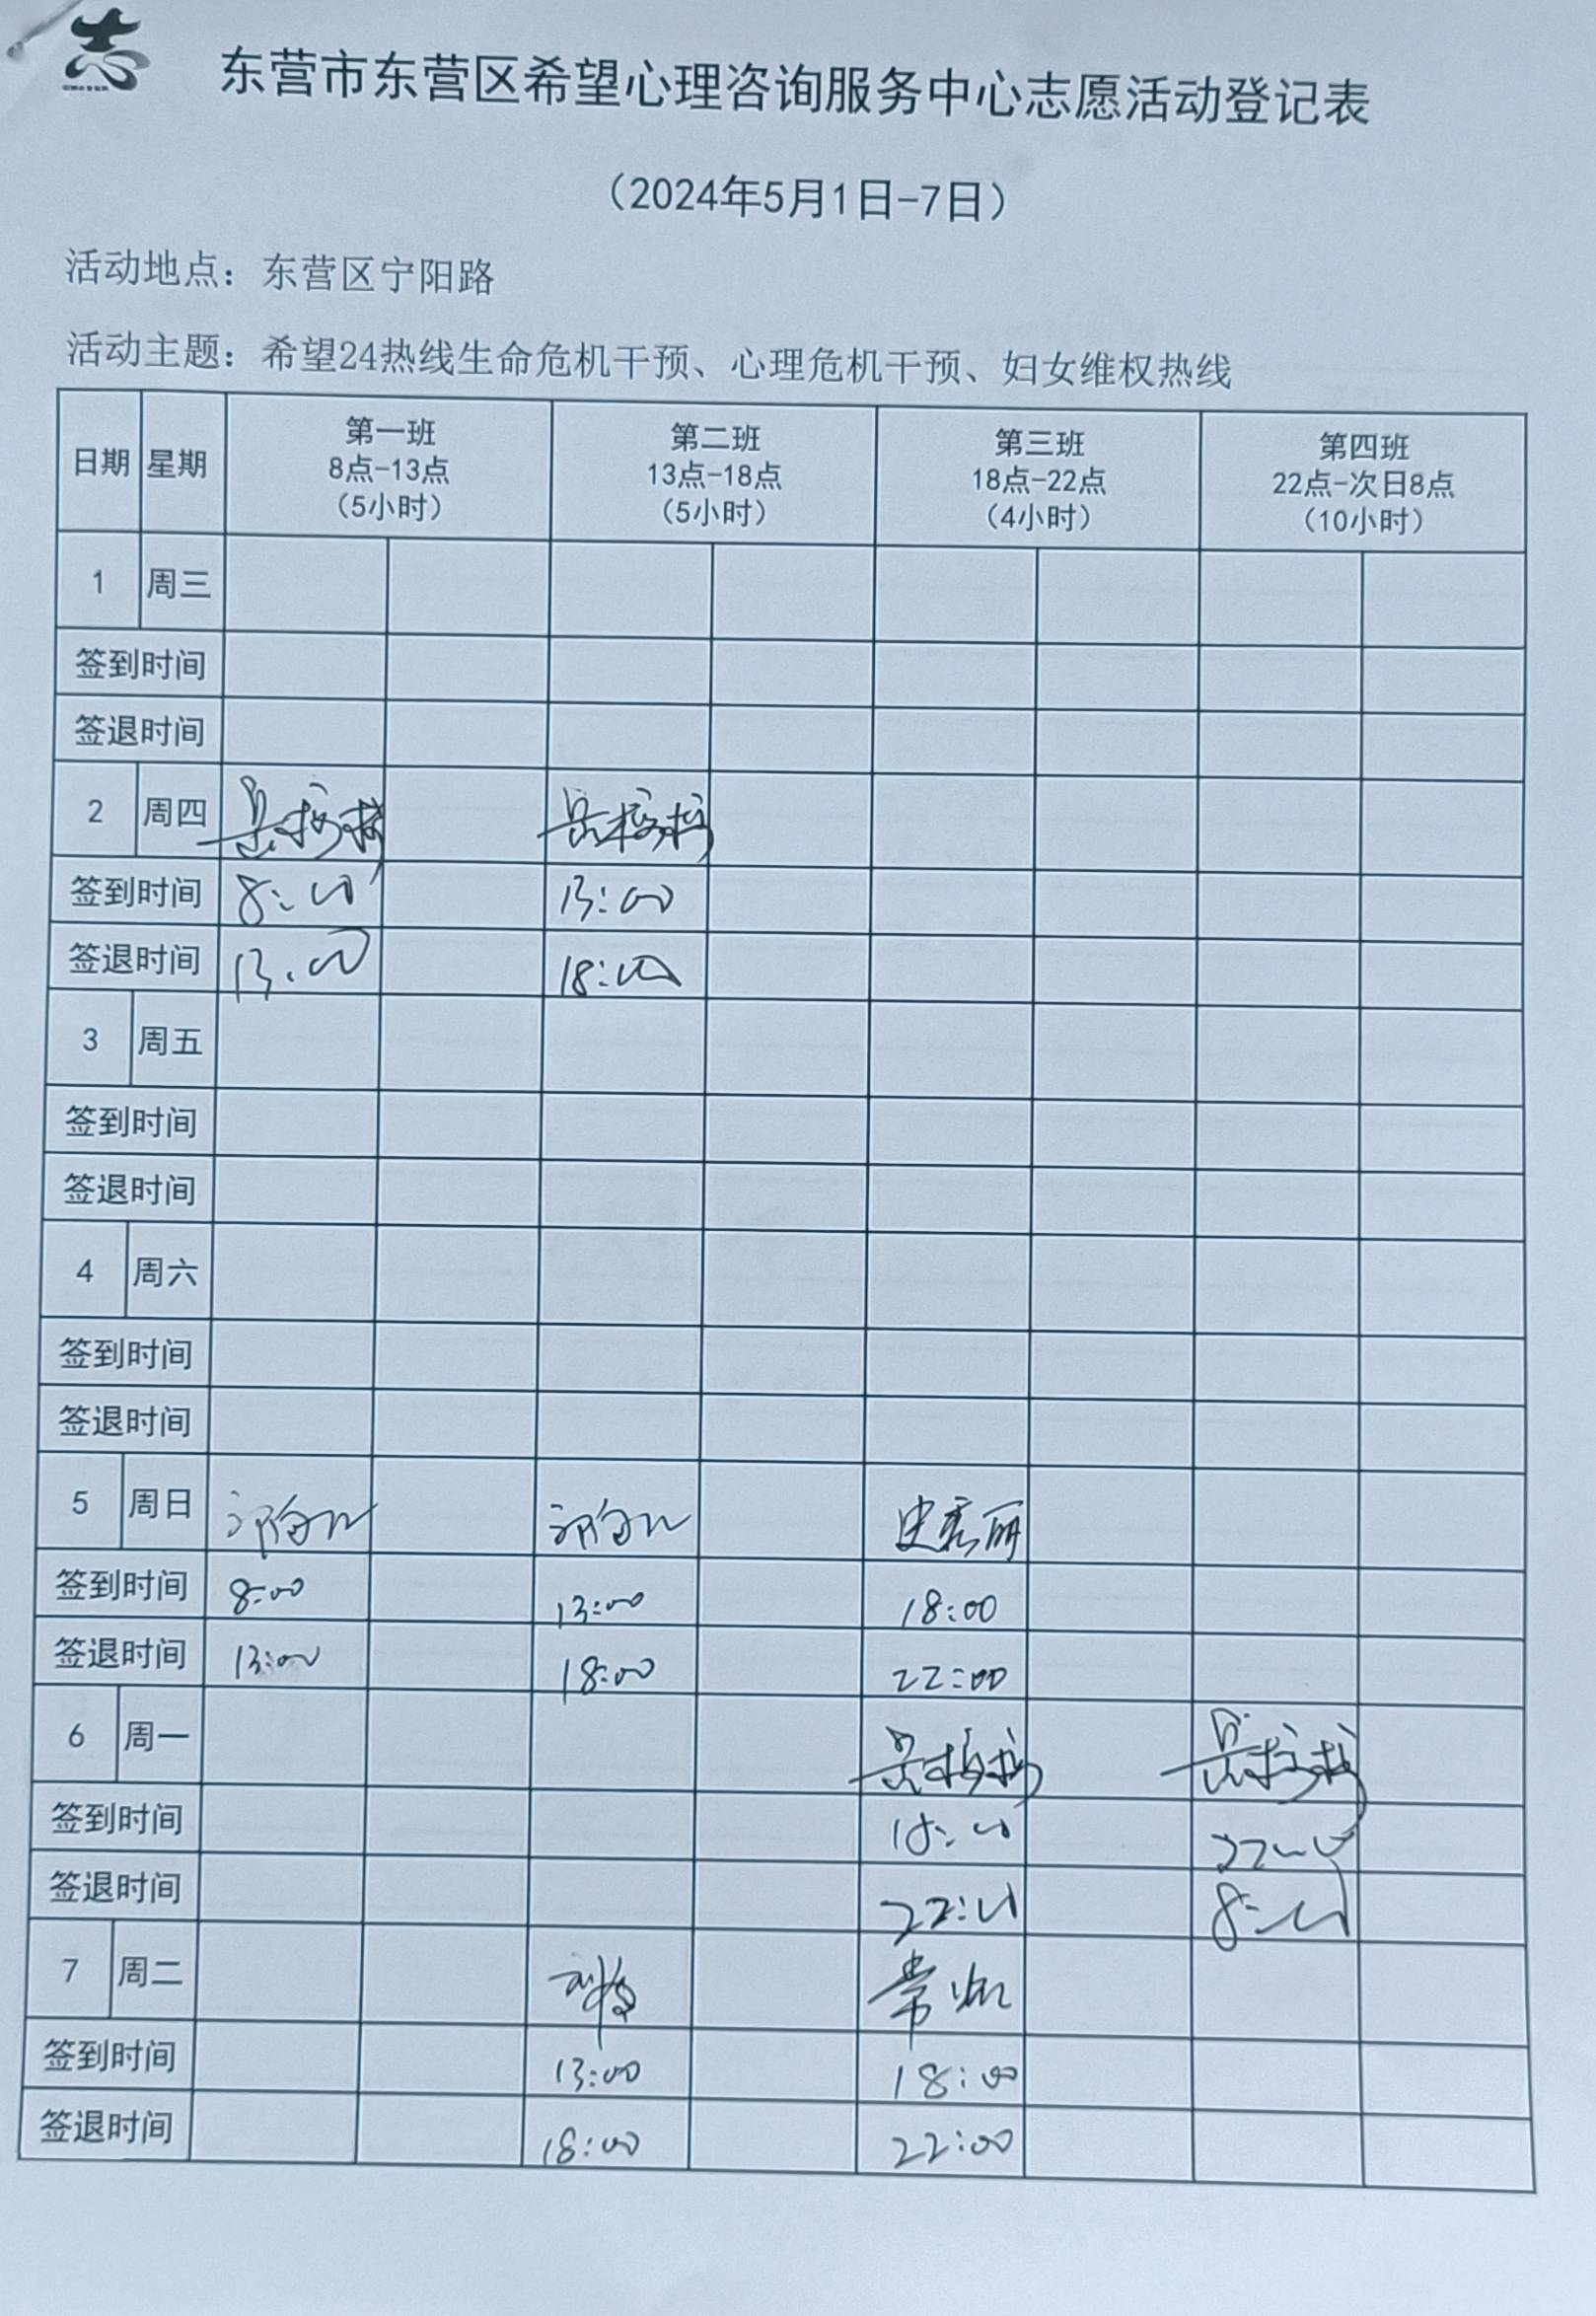 东营市东营区希望心理咨询服务中心志愿活动登记表
（2024年5月1日-7日）
活动地点：东营区宁阳路
活动主题：希望24热线生命危机干预、心理危机干预、妇女维权热线
日期 星期 第一班 8点-13点 （5小时） 第二班 13点-18点 （5小时） 第三班 18点-22点 （4小时） 第四班 22点-次日8点 （10小时）
1 周三
签到时间
签退时间
2 周四
签到时间 8:00 13:00
签退时间 13:00 18:00
3 周五
签到时间
签退时间
4 周六
签到时间
签退时间
5 周日 史秀丽
签到时间 8:00 13:00 18:00
签退时间 13:00 18:00 22:00
6 周一
签到时间 18:00 22:00
签退时间 22:00 8:00
7 周二
签到时间 13:00 18:00
签退时间 18:00 22:00